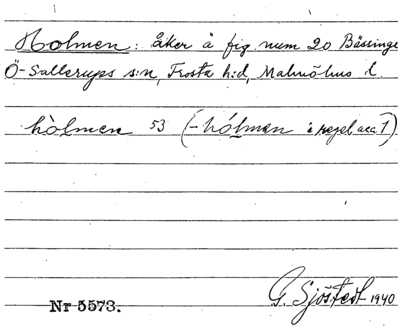 Holmen: åker å fig. num 20 Bässinge
Ö-Sallerups s:n, Frosta h:d, Malmöhus l.
hòlmen 53 (-hólmen i regel acc. 1)
G. Sjöstedt 1940
Nr 5573.